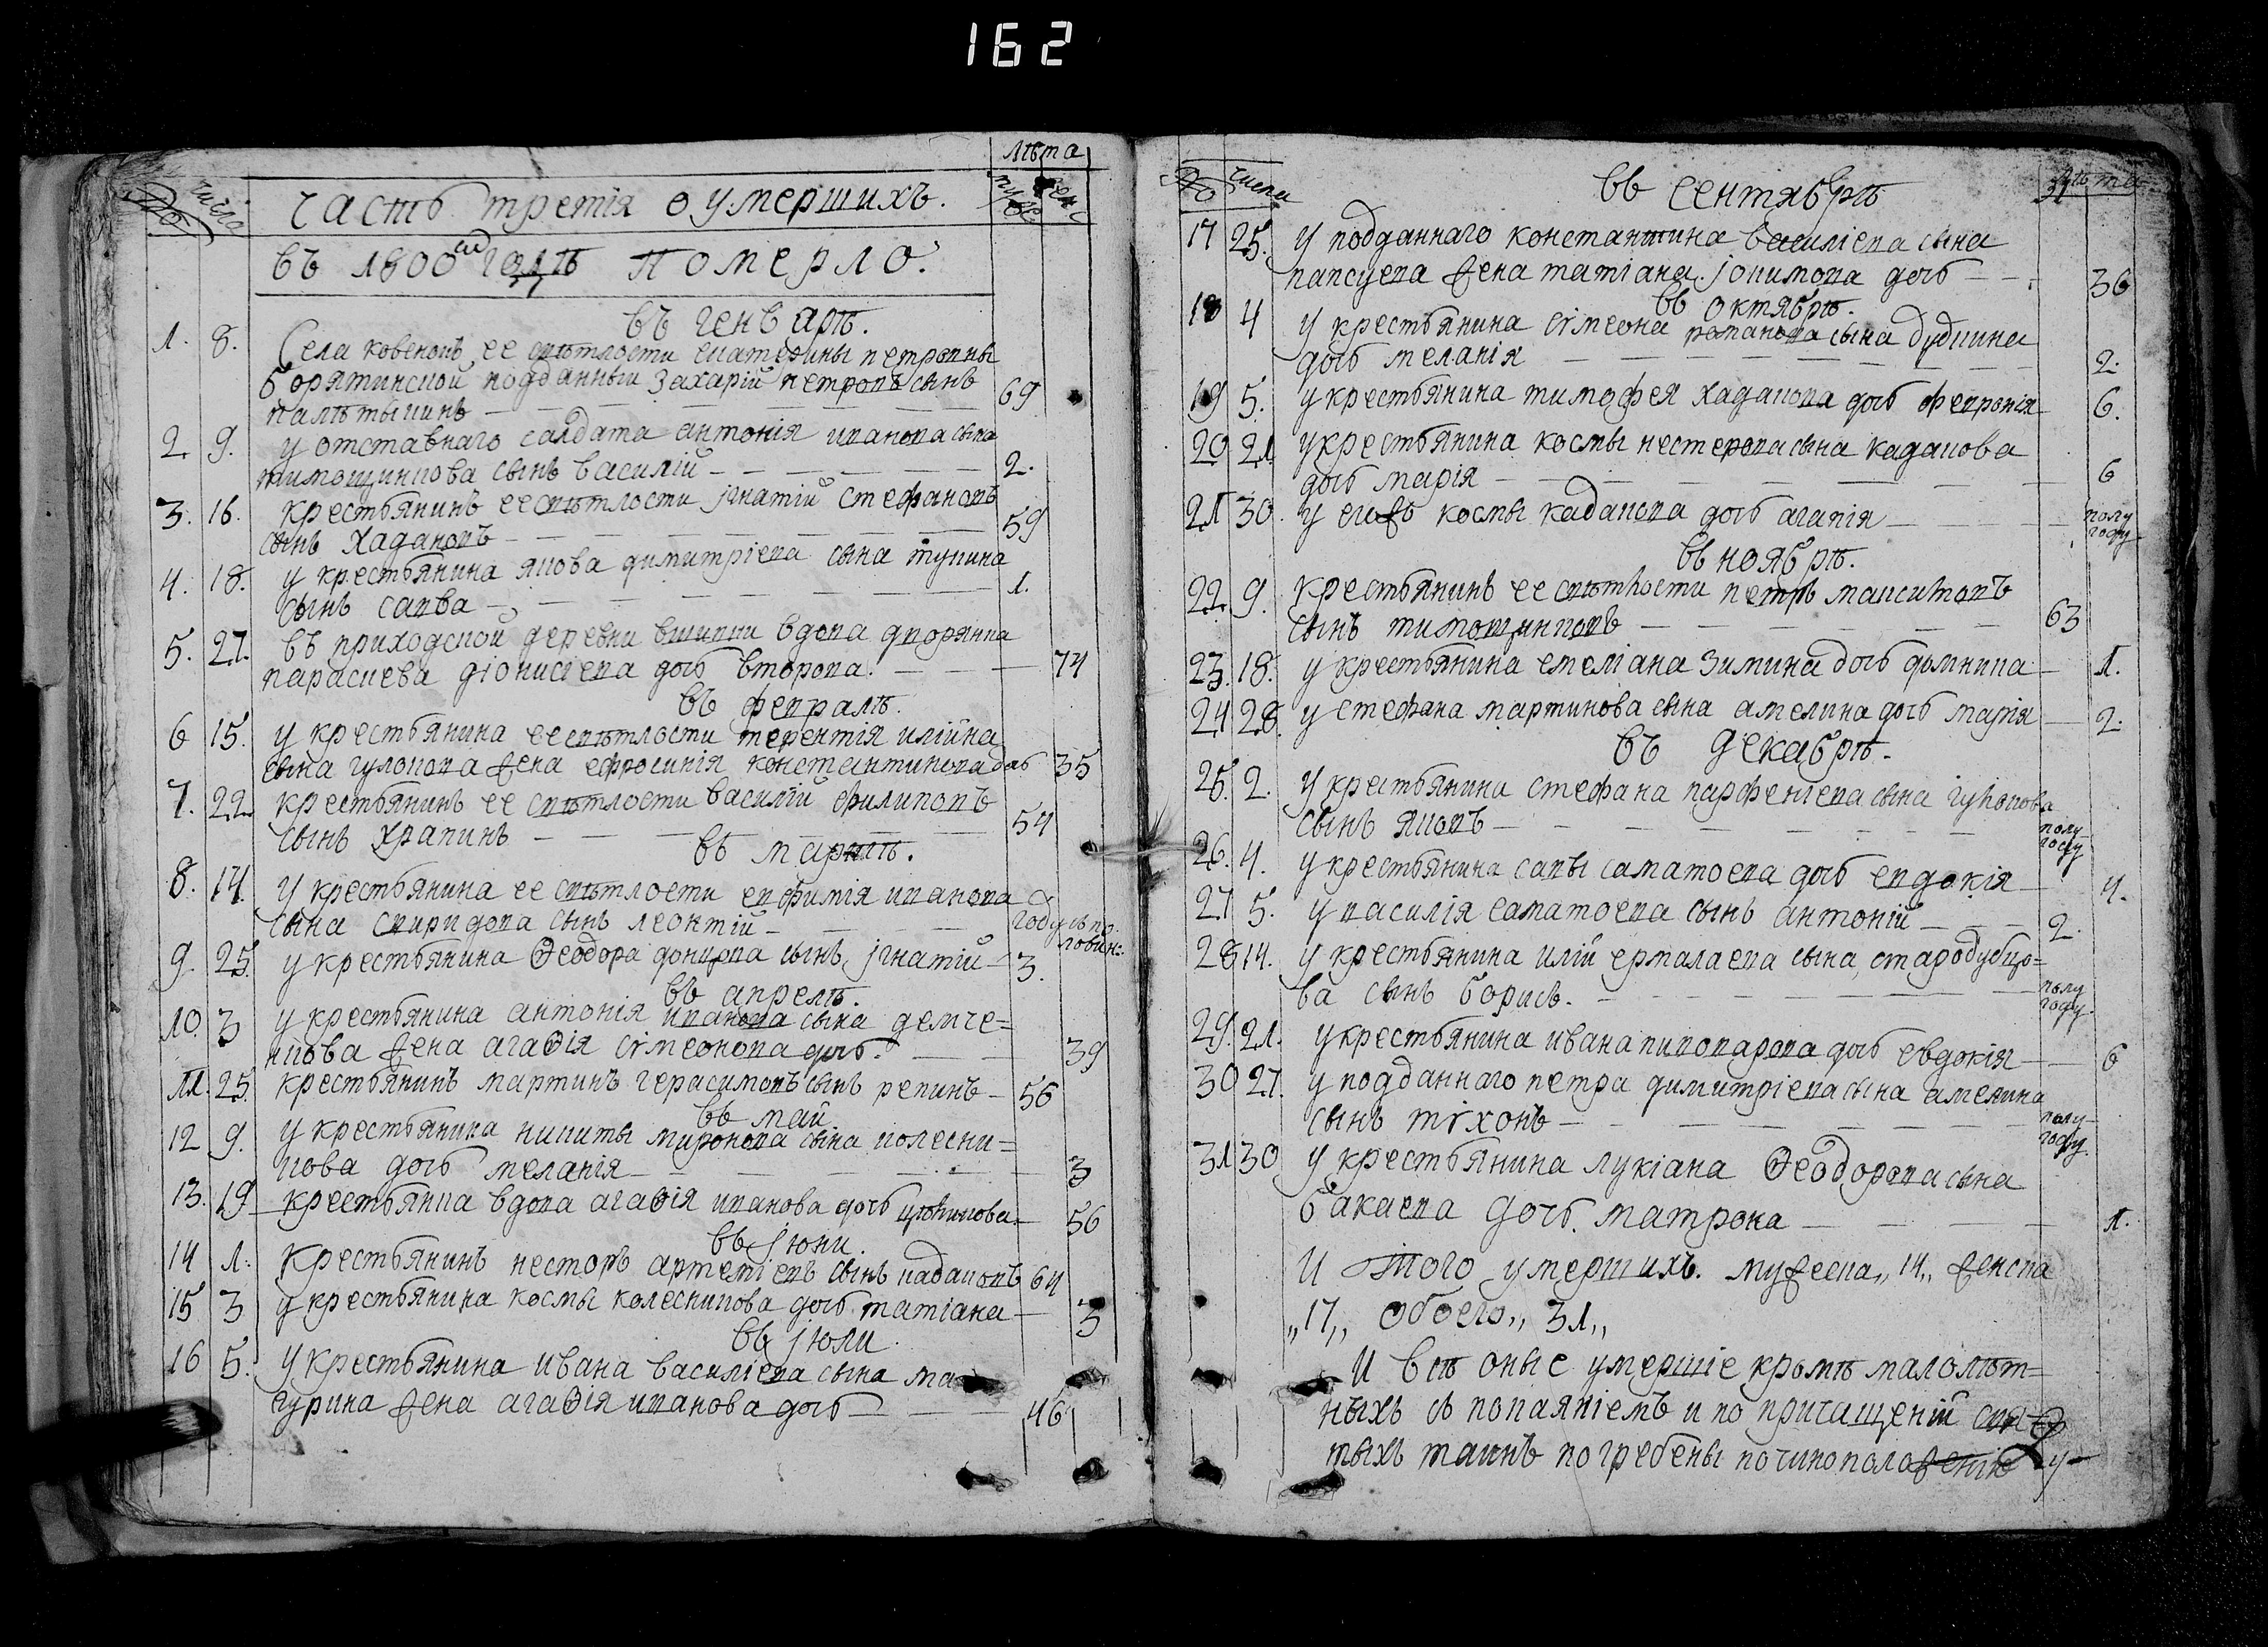 162
лѣта
№ число
часть третія о умершихъ.
муж женс
въ 1800мъ годѣ померло.
въ генварѣ.
1. 8. Села ковенокъ ее свѣтлости екатерины петровны
борятинской подданный захарій петровъ сынъ
69
2. 9. у отставнаго салдата антонія иванова сына
тимощинкова сынъ василій 2.
3. 16. крестьянинъ ее свѣтлости ігнатій стефановъ
сынъ кадаковъ 59
4. 18. у крестьянина якова димитріева сына тупина
сынъ савва 1.
5. 27. въ приходской деревни вшивки вдова дворянка
параскева діонисіева дочь второва. 74
въ февралѣ.
6 15. у крестьянина ее свѣтлости терентія илійна
сына гулокова жена ефросинія константинова дочь 35
7. 22. крестьянинъ ее свѣтлости василій филиповъ
сынъ храпинъ 54
въ мартѣ.
8. 14. у крестьянина ее свѣтлости евфимія иванова
сына спиридова сынъ леонтій году съ половин:
9 25. у крестьянина ѳеодора донцова сынъ ігнатій 3.
въ апрелѣ.
10. 3 у крестьянина антонія иванова сына демче=
нкова жена агаѳія сѵмеонова дочь. 39
11. 25. крестьянинъ мартинъ герасимовъ сынъ репинъ 56
въ май
12 9. у крестьянина никиты миронова сына колесни=
кова дочь меланія 3
13. 19 крестьянка вдова агаѳія иванова дочь 56
въ іюни.
14 1. крестьянинъ несторъ артеміевъ сынъ кадаковъ 64
15 3 у крестьянина космы колесникова дочь татіана 3
въ іюли.
16 5. у крестьянина ивана василіева сына ма
чурина жена агаѳія иванова дочь 46
№ числа лѣта
въ сентябрѣ
17 25. у подданнаго константина василіева сына
папсуева жена татіана іокимова дочь 36
въ октябрѣ.
18 4 у крестьянина сѵмеона романова сына дудкина
дочь меланія 2.
19 5. у крестьянина тимофея кадакова дочь февронія 6.
20 21 у крестьянина космы нестерова сына кадакова
дочь марія 6
21 30. у егожъ космы кадакова дочь агапія полу году
въ ноябрѣ.
22. 9. крестьянинъ ее свѣтлости петръ максимовъ
сынъ тимощинковъ 63
23. 18. у крестьянина емеліана зимина дочь домника 1.
24 28. у стефана мартинова сына амелина дочь марія 2.
въ декабрѣ.
25. 2. у крестьянина стефана парфеніева сына гулокова
сынъ яковъ полу году
26. 4. у крестьянина савы саматоева дочь евдокія 4.
27 5. у василія саматоева сынъ антоній 2.
28 14. у крестьянина илій ермалаева сына стародубцо=
ва сынъ борисъ. полу году
29. 21. у крестьянина ивана пивоварова дочь евдокія 6
30 27. у подданнаго петра димитріева сына амелина
сынъ тѵхонъ полу году
31 30 у крестьянина лукіана ѳеодорова сына
бакаева дочь матрона 1.
И того умершихъ. мужеска „14„ женска
„17„ обоего „31„
И всѣ оные умершіе кромѣ малолѣт=
ныхъ съ покаяніемъ и по причащеніи свя
тыхъ таинъ погребены по чиноположенію